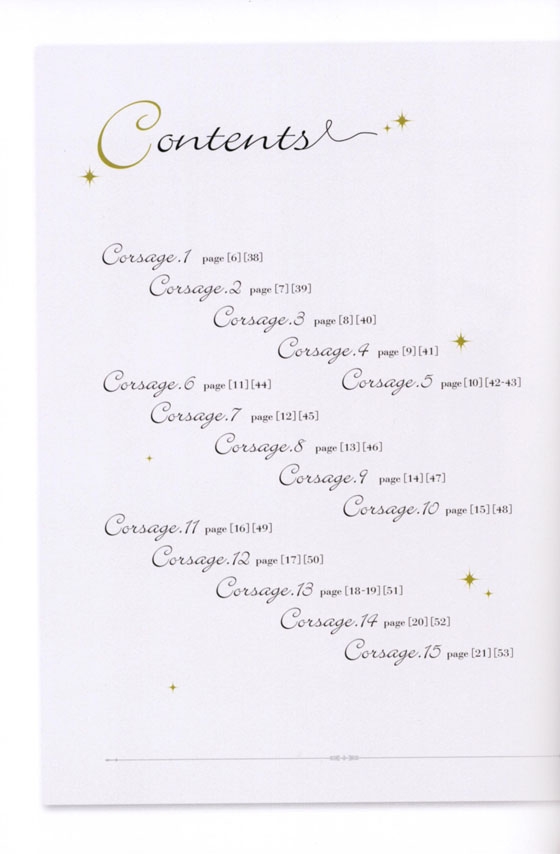 Contents
Corsage.1 page [6] [38]
Corsage.2 page [7] [39]
Corsage.3 page [8] [40]
Corsage.4 page [9] [41]
Corsage.5 page [10] [42-43]
Corsage.6 page [11] [44]
Corsage.7 page [12] [45]
Corsage.8 page [13] [46]
Corsage.9 page [14] [47]
Corsage.10 page [15] [48]
Corsage.11 page [16] [49]
Corsage.12 page [17] [50]
Corsage.13 page [18-19] [51]
Corsage.14 page [20] [52]
Corsage.15 page [21] [53]